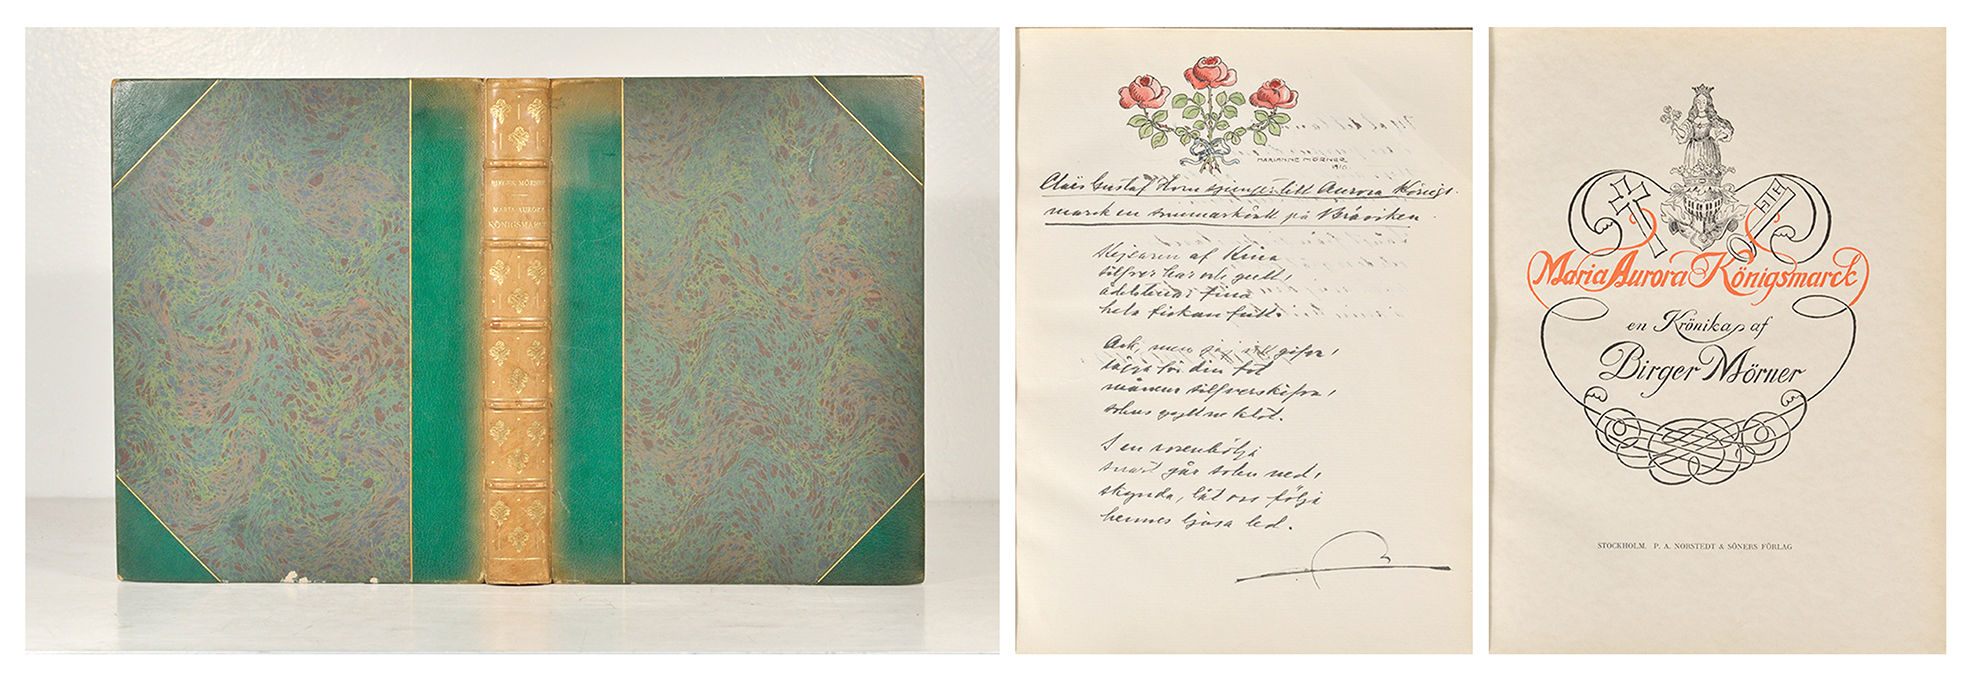 BIRGER MÖRNER
MARIA AURORA
KÖNIGSMARCK
MARIANNE MÖRNER
1910
Claës Gustaf Horn sjunger till Aurora Königs-
marck en sommarkväll på Bråviken.
Kejsaren af Kina
silfver har och guld,
ädelstenar fina
hela fickan full.
Ack, men jag vill gifva,
lägga för din fot
månens silfverskifva,
solens gyllne klot.
I en rosenbölja
snart går solen ned,
skynda, låt oss följa
hennes ljusa led.
Maria Aurora Königsmarck
en Krönika af
Birger Mörner
STOCKHOLM. P. A. NORSTEDT & SÖNERS FÖRLAG